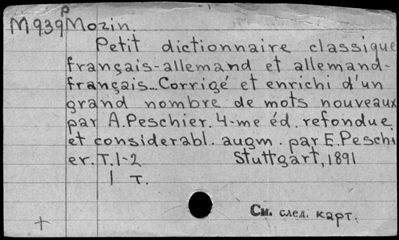 M 939 p Mozin.
Petit dictionnaire classique
français-allemand et allemand-
français... Corrigé et enrichi d'un
grand nombre de mots nouveaux
par A. Peschier. 4-me éd. refondue
et considerabl. augm. par E. Peschi
er. T. 1-2 Stuttgart, 1891
1 т.
См. след. карт.
+